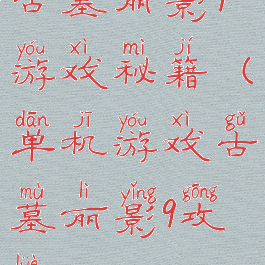 古墓丽影9
yóu xì mì jí
游戏秘籍（
dān jī yóu xì gǔ
单机游戏古
mù lì yǐng gōng
墓丽影9攻
lüè